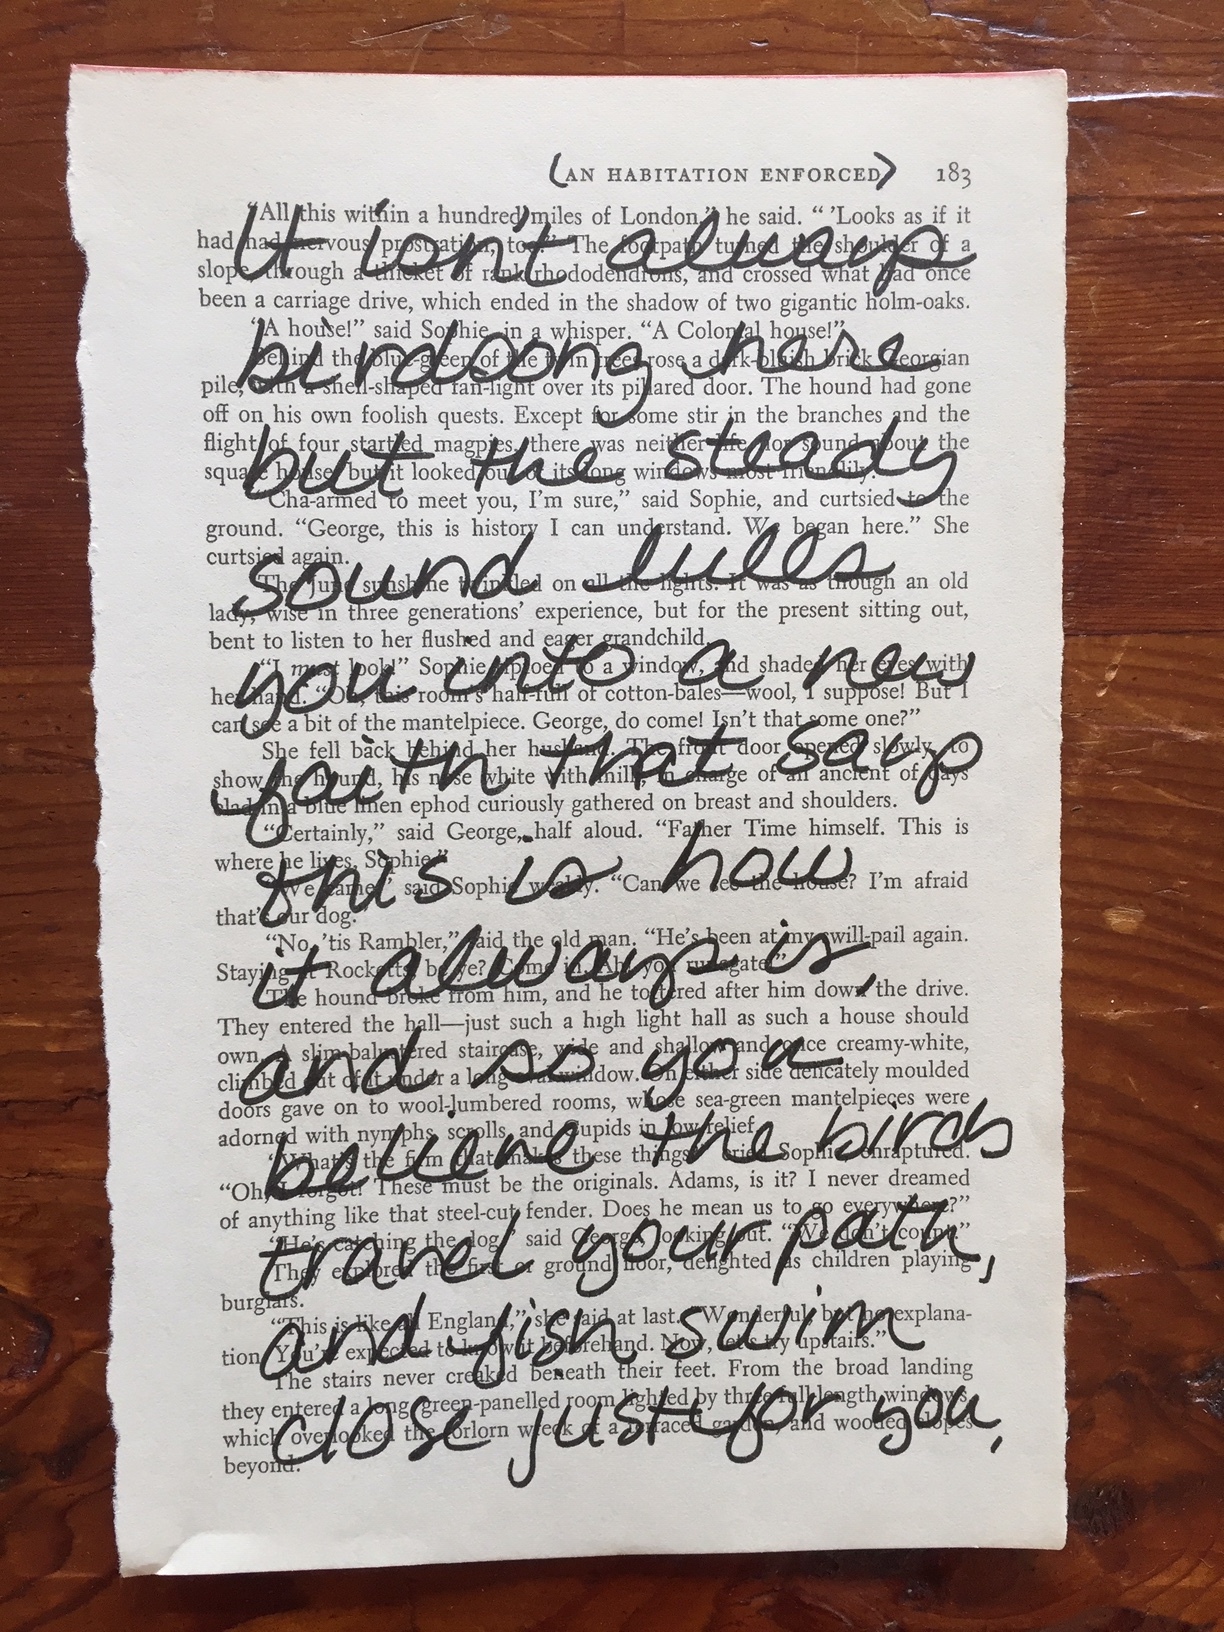 (AN HABITATION ENFORCED) 183
“All this within a hundred miles of London,” he said. “ ’Looks as if it
had had nervous prostration, too.” The footpath turned the shoulder of a
slope, through a thicket of rank rhododendrons, and crossed what had once
been a carriage drive, which ended in the shadow of two gigantic holm-oaks.
“A house!” said Sophie, in a whisper. “A Colonial house!”
Behind the blue-green of the twin trees rose a dark-bluish brick Georgian
pile, with a shell-shaped fan-light over its pillared door. The hound had gone
off on his own foolish quests. Except for some stir in the branches and the
flight of four startled magpies, there was neither life nor sound about the
square house, but it looked out of its long windows most friendlily.
“Cha-armed to meet you, I’m sure,” said Sophie, and curtsied to the
ground. “George, this is history I can understand. We began here.” She
curtsied again.
The June sunshine twinkled on all the lights. It was as though an old
lady, wise in three generations’ experience, but for the present sitting out,
bent to listen to her flushed and eager grandchild.
“I must look!” Sophie tiptoed to a window, and shaded her eyes with
her hand. “Oh, this room’s half-full of cotton-bales—wool, I suppose! But I
can see a bit of the mantelpiece. George, do come! Isn’t that some one?”
She fell back behind her husband. The front door opened slowly, to
show the hound, his nose white with milk, in charge of an ancient of days
clad in a blue linen ephod curiously gathered on breast and shoulders.
“Certainly,” said George, half aloud. “Father Time himself. This is
where he lives, Sophie.”
“We came,” said Sophie weakly. “Can we see the house? I’m afraid
that’s our dog.”
“No, ’tis Rambler,” said the old man. “He’s been at my swill-pail again.
Staying at Rocketts, be ye? Come in. Ah! you runagate!”
The hound broke from him, and he tottered after him down the drive.
They entered the hall—just such a high light hall as such a house should
own. A slim-balustered staircase, wide and shallow and once creamy-white,
climbed out of it under a long oval window. On either side delicately moulded
doors gave on to wool-lumbered rooms, whose sea-green mantelpieces were
adorned with nymphs, scrolls, and Cupids in low relief.
“What’s the firm that makes these things?” cried Sophie, enraptured.
“Oh, I forgot! These must be the originals. Adams, is it? I never dreamed
of anything like that steel-cut fender. Does he mean us to go everywhere?”
“He’s catching the dog,” said George, looking out. “We don’t count.”
They explored the first or ground floor, delighted as children playing
burglars.
“This is like all England,” she said at last. “Wonderful, but no explana-
tion. You’re expected to know it beforehand. Now, let’s try upstairs.”
The stairs never creaked beneath their feet. From the broad landing
they entered a long, green-panelled room lighted by three full-length windows,
which overlooked the forlorn wreck of a terraced garden, and wooded slopes
beyond.
It isn't always
birdsong here
but the steady
sound lulls
you into a new
faith that says
this is how
it always is,
and so you
believe the birds
travel your path,
and fish swim
close just for you,